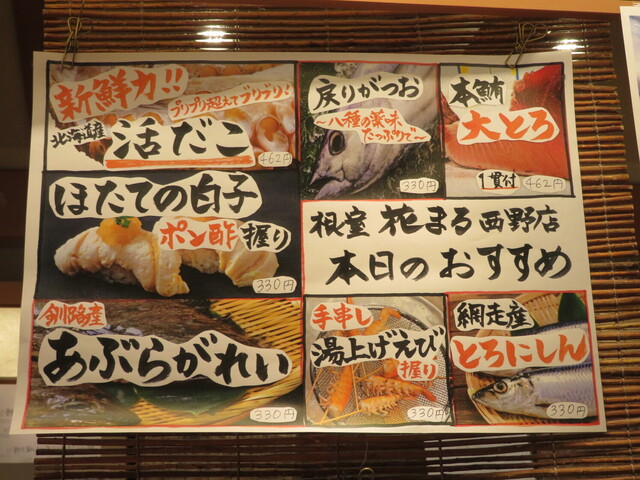 新鮮力!!
プリプリ超えてブリブリ!
北海道産
活だこ
462円
戻りがつお
〜八種の薬味
たっぷりで〜
330円
本鮪
大とろ
1貫付
462円
ほたての白子
ポン酢 握り
330円
根室 花まる 西野店
本日のおすすめ
釧路産
あぶらがれい
330円
手串し
湯上げえび
握り
330円
網走産
とろにしん
330円